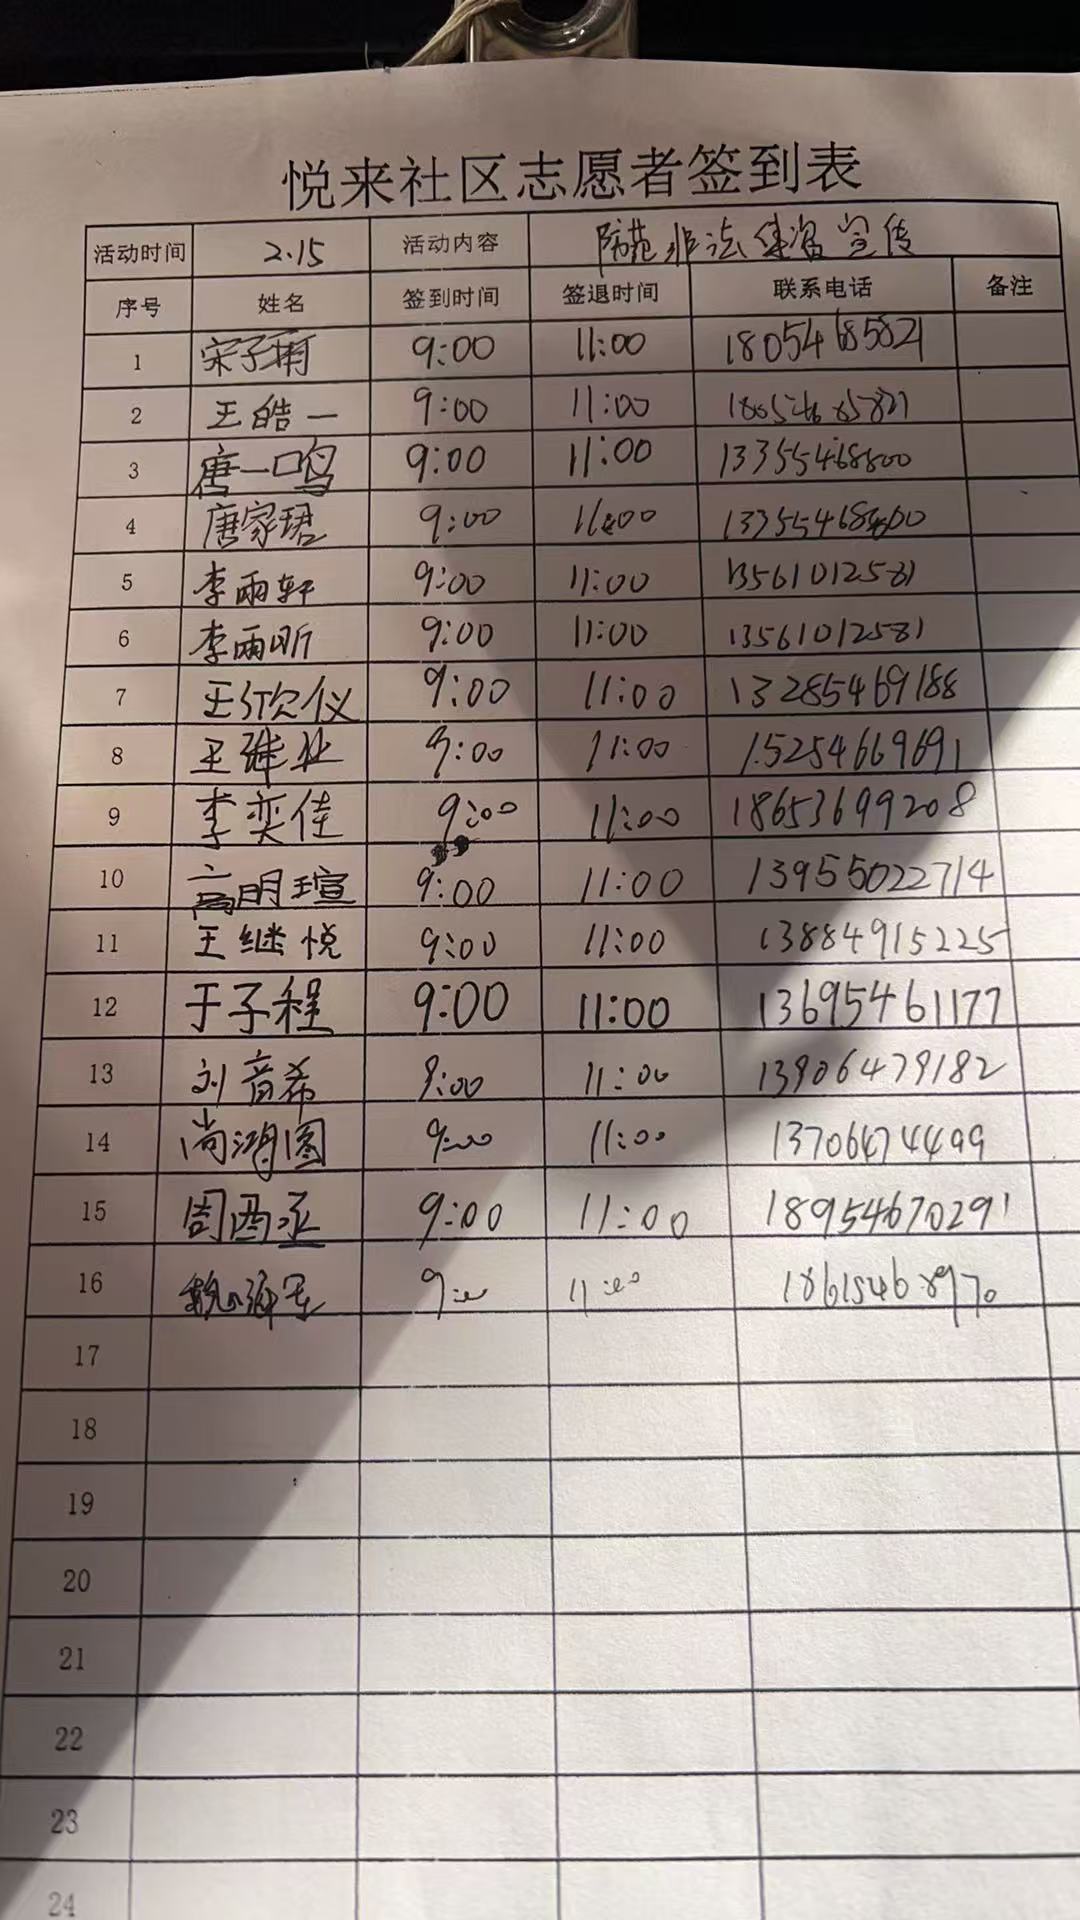 悦来社区志愿者签到表
活动时间 2.15 活动内容 防范非法集资宣传
序号 姓名 签到时间 签退时间 联系电话 备注
1 宋子雨 9:00 11:00 18054685821
2 王皓一 9:00 11:00
3 唐一鸣 9:00 11:00 13355468800
4 唐家珺 9:00 11:00 13355468800
5 李雨轩 9:00 11:00 13561012581
6 李雨昕 9:00 11:00 13561012581
7 王欣仪 9:00 11:00 13285469188
8 王 9:00 11:00 15254669691
9 李奕佳 9:00 11:00 18653699208
10 高明瑄 9:00 11:00 13955022714
11 王继悦 9:00 11:00 13884915225
12 于子程 9:00 11:00 13695461177
13 刘音希 9:00 11:00 13906479182
14 尚鸿图 9:00 11:00 13706474499
15 周西丞 9:00 11:00 18954670291
16 9:00 11:00 18615468970
17
18
19
20
21
22
23
24